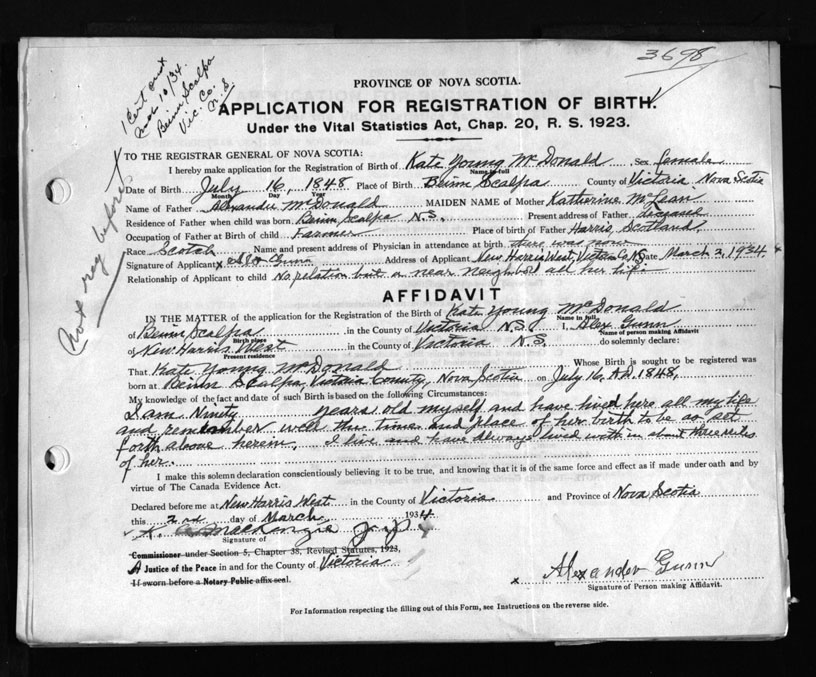 3698
1 Cert out
Mar 10/34.
Beinn Scalpa
Vic. Co.
N.S.
PROVINCE OF NOVA SCOTIA.
APPLICATION FOR REGISTRATION OF BIRTH.
Under the Vital Statistics Act, Chap. 20, R. S. 1923.
Not reg before X
TO THE REGISTRAR GENERAL OF NOVA SCOTIA:
I hereby make application for the Registration of Birth of Kate Young McDonald Sex female
Name in full
Date of Birth July 16, 1848 Place of Birth Beinn Scalpa County of Victoria Nova Scotia
Month Day Year
Name of Father Alexander McDonald MAIDEN NAME of Mother Katherine McLean
Residence of Father when child was born Beinn Scalpa N.S. Present address of Father deceased
Occupation of Father at Birth of child Farmer Place of birth of Father Harris, Scotland,
Race Scotch Name and present address of Physician in attendance at birth there was none
Signature of Applicant x Alex Gunn Address of Applicant New Harris West, Victoria Co, N.S. Date March 2, 1934.
Relationship of Applicant to child No relation but a near neighbor all her life.
AFFIDAVIT
IN THE MATTER of the application for the Registration of the Birth of Kate Young McDonald
Name in full
of Beinn Scalpa in the County of Victoria N.S. I, Alex Gunn
Birth place Name of person making Affidavit
of New Harris West in the County of Victoria N.S. do solemnly declare:
Present residence
That Kate Young McDonald Whose Birth is sought to be registered was
born at Beinn Scalpa, Victoria County, Nova Scotia on July 16, A.D. 1848,
My knowledge of the fact and date of such Birth is based on the following Circumstances:
I am Ninety years old myself and have lived here all my life
and remember well the time and place of her birth to be as set
forth above herein, I live and have always lived within about three miles
of her.
I make this solemn declaration conscientiously believing it to be true, and knowing that it is of the same force and effect as if made under oath and by
virtue of The Canada Evidence Act.
Declared before me at New Harris West in the County of Victoria and Province of Nova Scotia
this 2nd day of March 1934
A. MacKenzie J.P.
Signature of
Commissioner under Section 5, Chapter 38, Revised Statutes, 1923,
A Justice of the Peace in and for the County of Victoria
If sworn before a Notary Public affix seal.
x Alexander Gunn
Signature of Person making Affidavit.
For Information respecting the filling out of this Form, see Instructions on the reverse side.